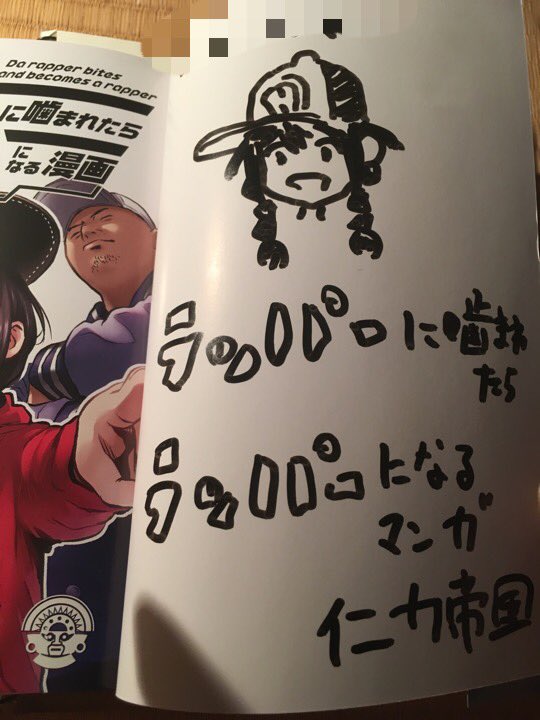 Da rapper bites
and becomes a rapper
に噛まれたら
に
なる漫画
ラッパーに噛まれ
たら
ラッパーになる
マンガ
仁力帝国